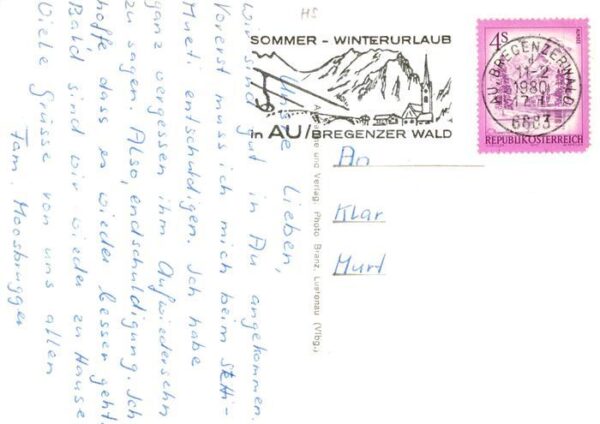 HS
SOMMER - WINTERURLAUB
in AU/BREGENZER WALD
4S
AU/BREGENZERWALD
11-2
1980
17-1
6883
REPUBLIK ÖSTERREICH
Unsere Lieben,
wir sind gut in Au angekommen.
Vorerst muss ich mich beim
Mueti entschuldigen. Ich habe
ganz vergessen ihm Aufwiedersehn
zu sagen. Also, endschuldigung. Ich
hoffe dass es wieder besser geht.
Bald sind wir wieder zu Hause
Viele Grüsse von uns allen
Fam. Moosbrugger
und Verlag: Photo Branz, Lustenau (Vlbg.)
An
Klar
Murt